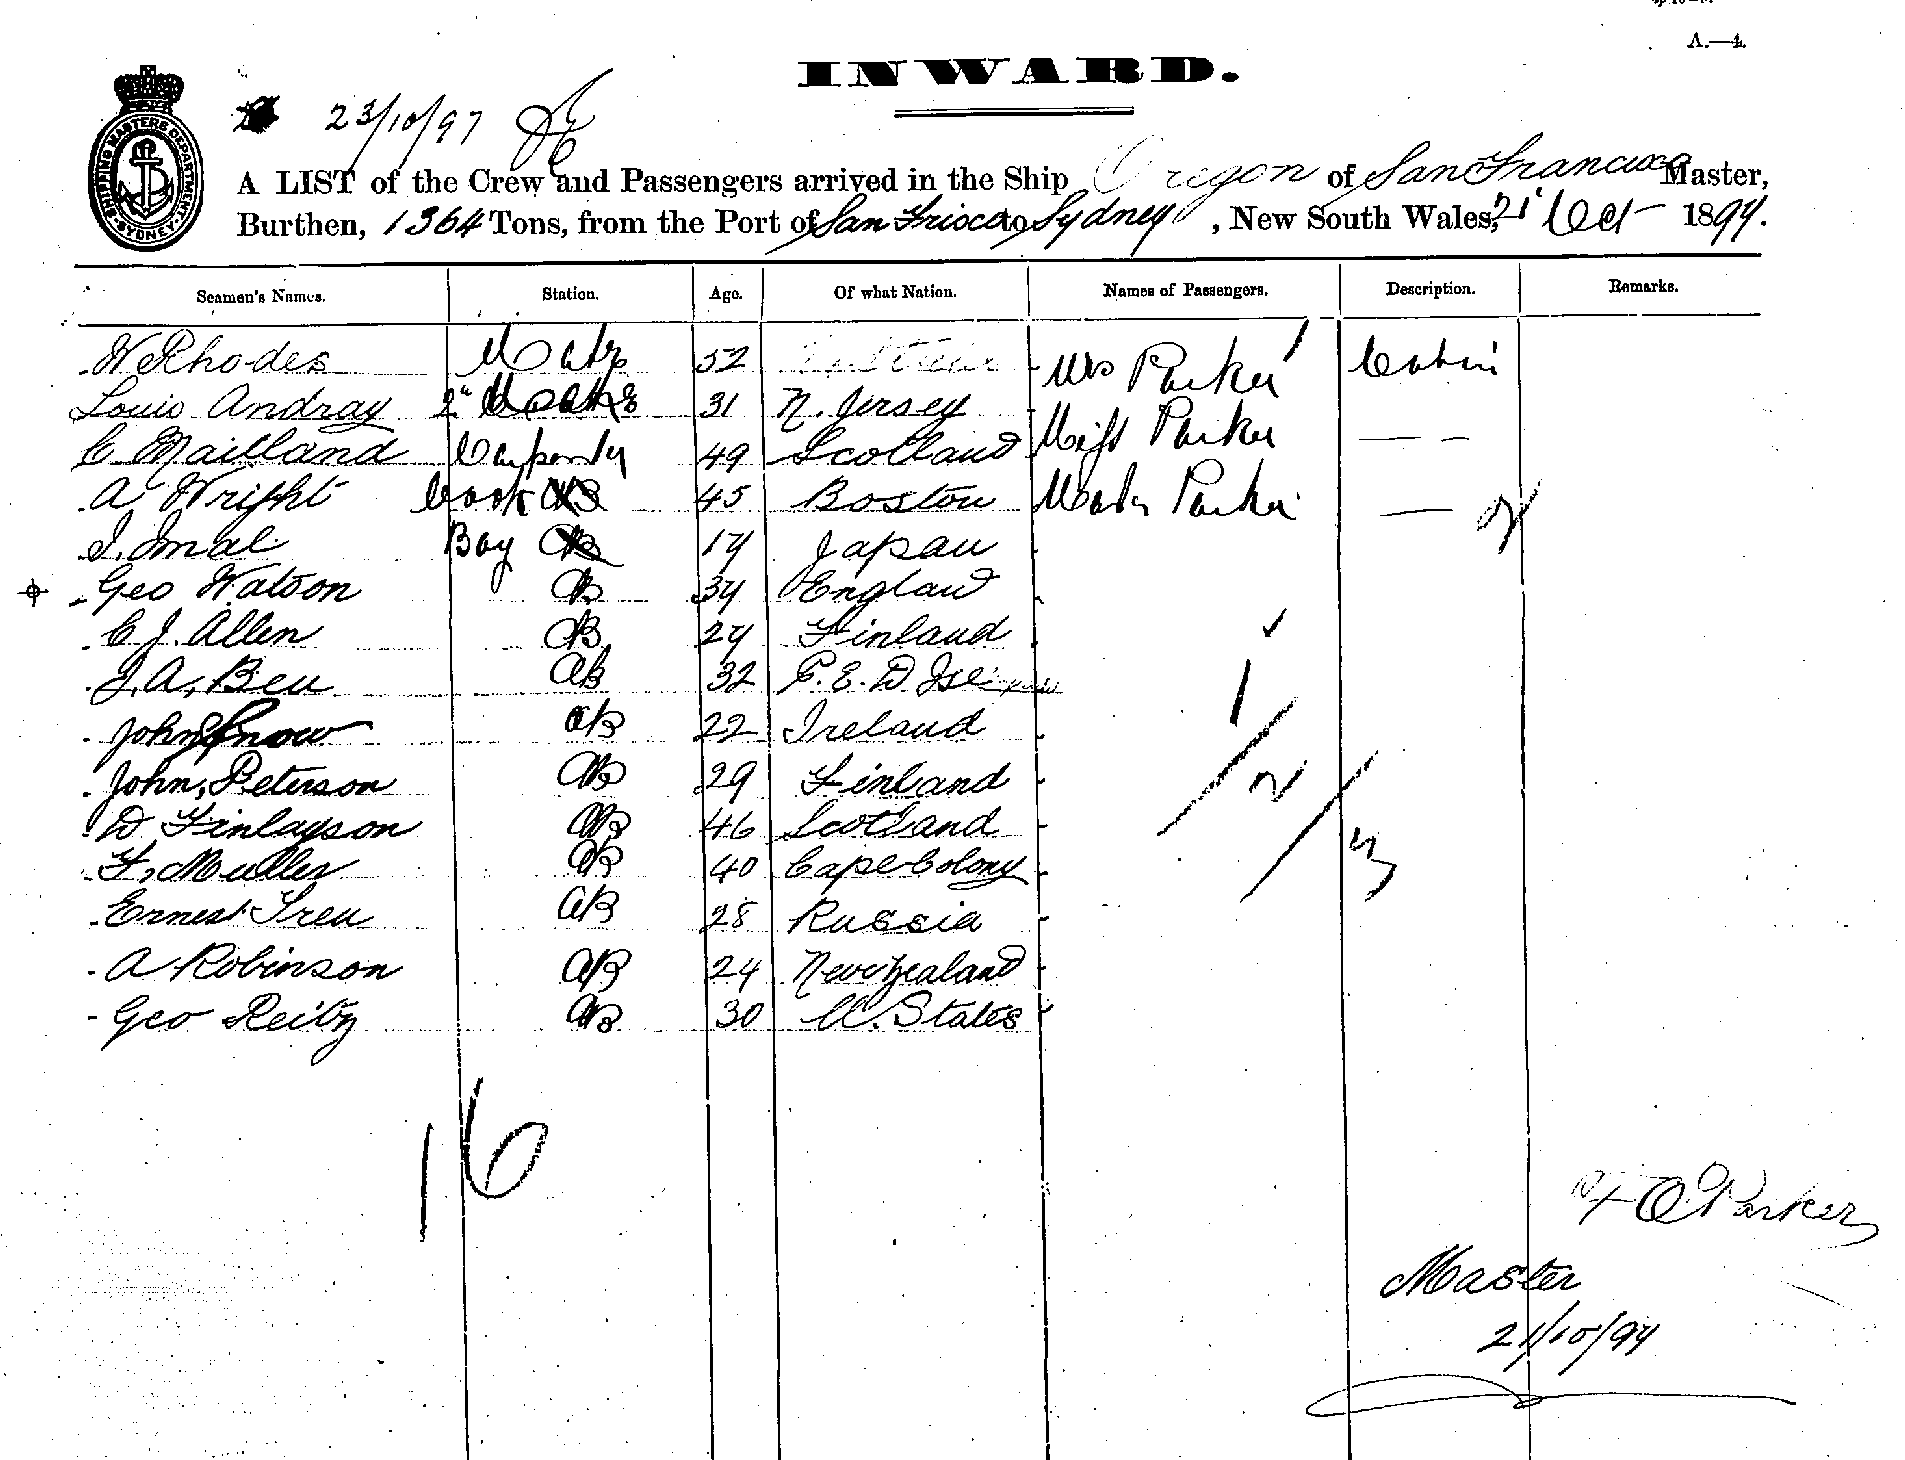 A.—4.
INWARD.
SHIPPING MASTERS DEPARTMENT SYDNEY
23/10/97
A LIST of the Crew and Passengers arrived in the Ship Oregon of San Francisco Master,
Burthen, 1364 Tons, from the Port of San Frisco to Sydney, New South Wales, 21st Oct 1897.
Seamen's Names. Station. Age. Of what Nation. Names of Passengers. Description. Remarks.
W Rhodes Mate 52 Mrs Parker Cabin
Louis Andray 2nd Mate 31 N. Jersey Miss Parker — –
C Mailland Carpenter 49 Scotland
A Wright Cook 45 Boston Master Parker —
I. Imal Boy 17 Japan
Geo Watson AB 37 England
C J. Allen AB 27 Finland
J. A. Beu AB 32 P. E. D Isl
John Snow AB 22 Ireland 1
John, Peterson AB 29 Finland 2
D Finlayson AB 46 Scotland 3
F. Muller AB 40 Cape Colony
Ernest Treu AB 28 Russia
A Robinson AB 24 New Zealand
Geo Reitz AB 30 U. States
16
Parker
Master
21/10/97